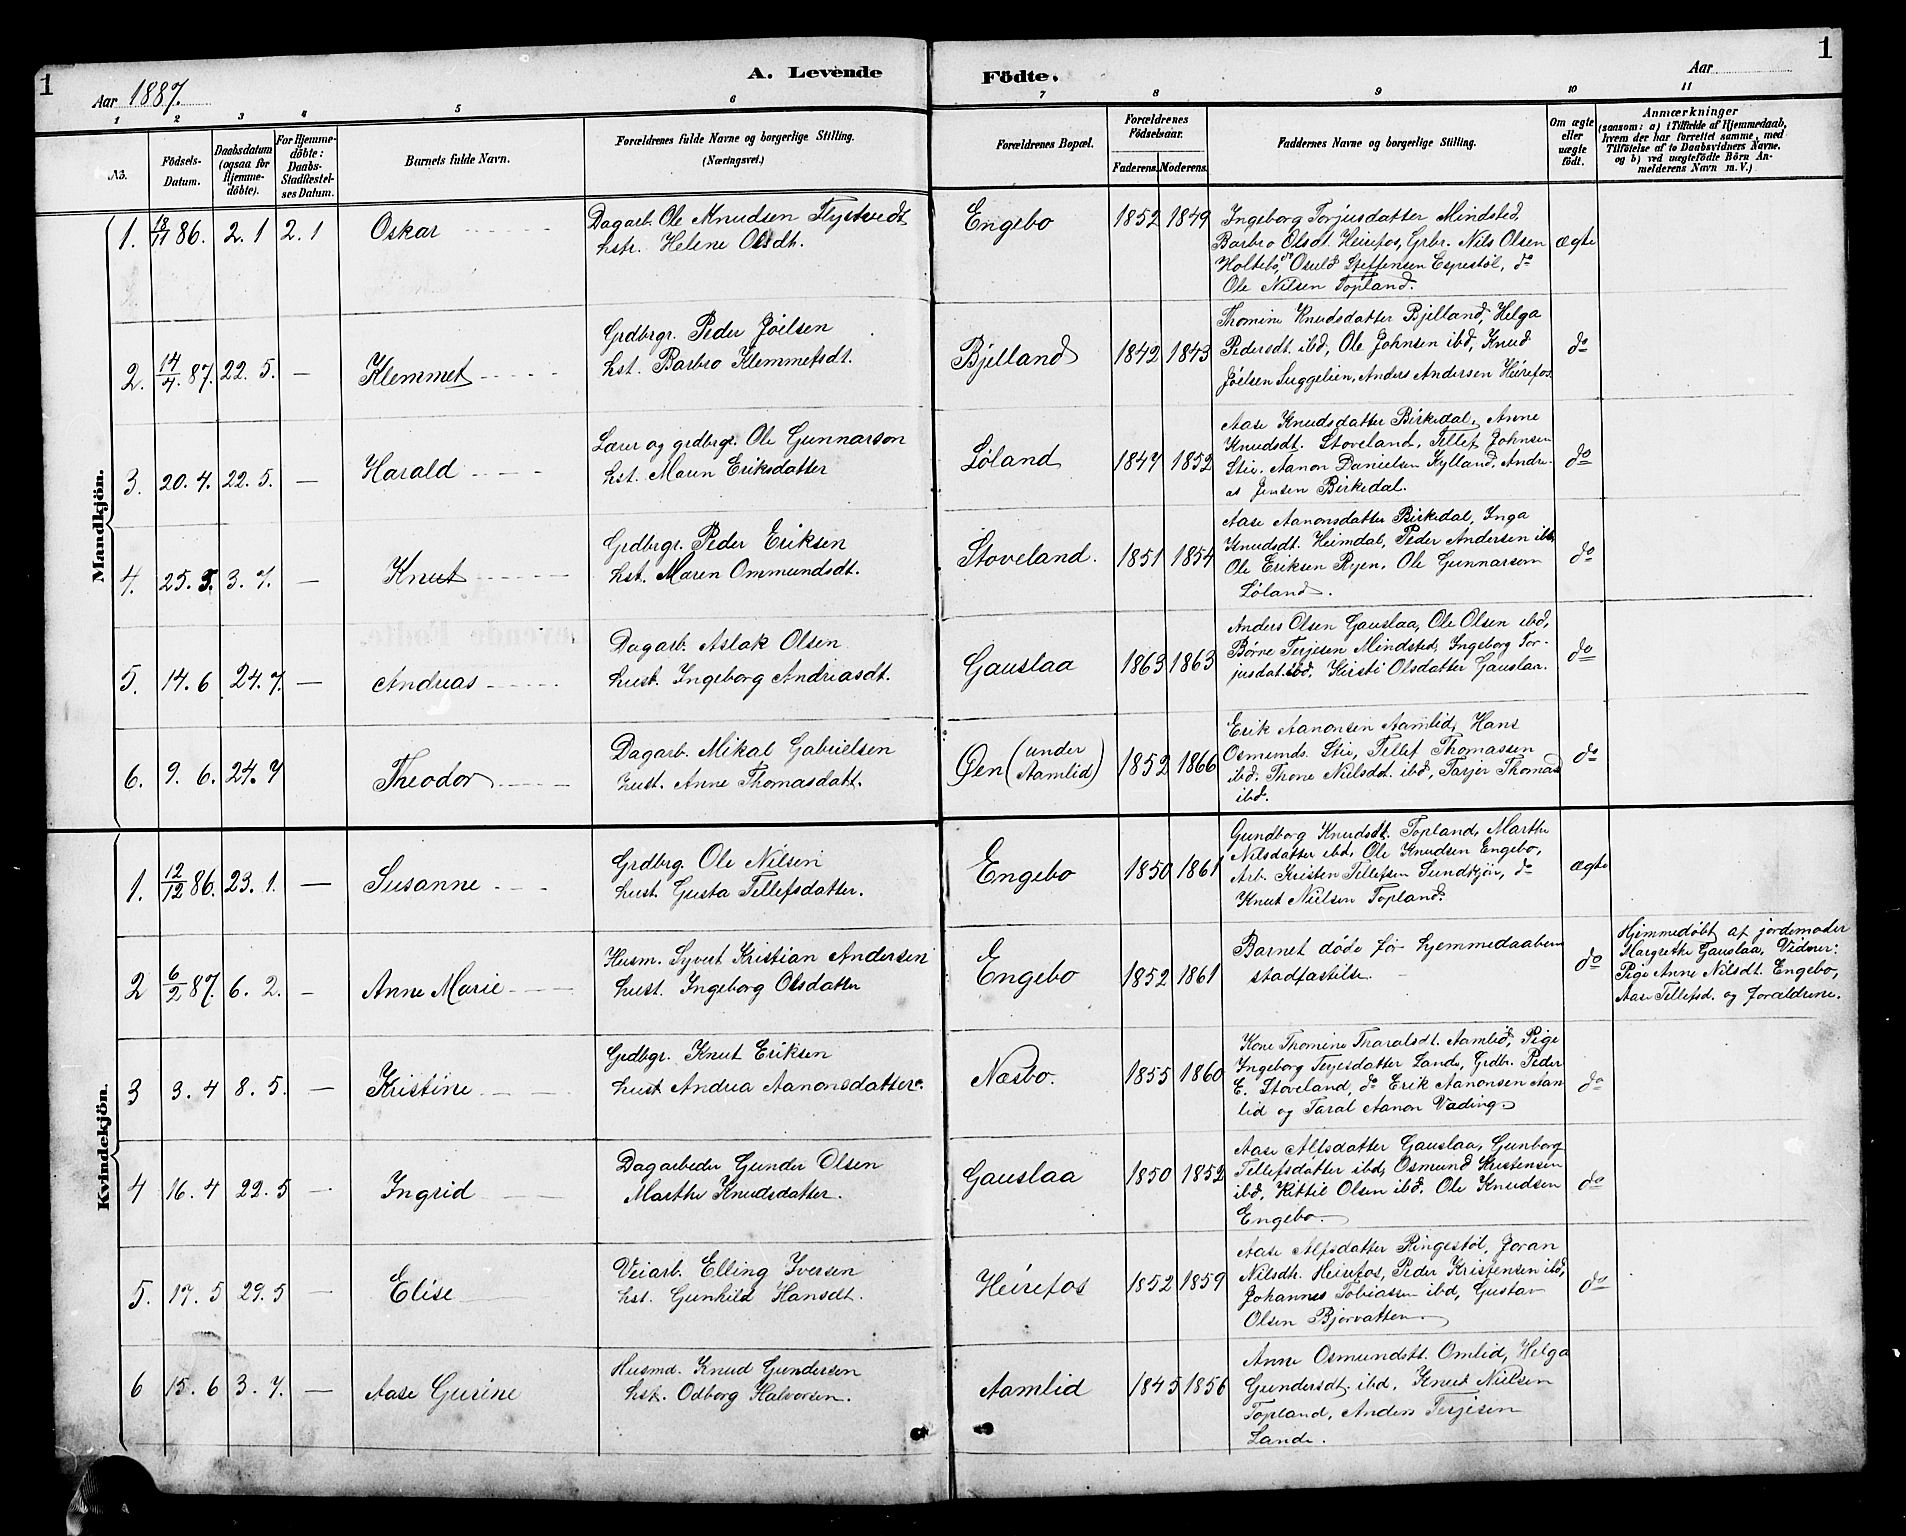 1
A. Levende Födte.
1
Aar 1887.
Aar
1 2 3 4 5 6 7 8 9 10 11
No.
Födsels-Datum.
Daabsdatum (ogsaa for Hjemmedöbte).
For Hjemmedöbte: Daabs-Stadfæstelses Datum.
Barnets fulde Navn.
Forældrenes fulde Navne og borgerlige Stilling. (Næringsvei.)
Forældrenes Bopæl.
Forældrenes Födselsaar.
Faderens. Moderens.
Faddernes Navne og borgerlige Stilling.
Om ægte eller uægte födt.
Anmærkninger
(saasom: a) i Tilfælde af Hjemmedaab, hvem der har forrettet samme, med Tilföielse af to Daabsvidners Navne, og b) ved uægtefödte Börn Anmelderens Navn m. V.)
Mandkjön.
1. 18/11 86. 2. 1 2. 1 Oskar
Dagarb. Ole Knudsen Flystvedt
hstr. Helene Olsdt.
Engebo 1852 1849
Ingeborg Torjusdatter Mindsted,
Barbro Olsdt. Heirefos, Grbr. Nils Olsen
Holtebø, do Osuld Steffensen Espestøl, do
Ole Nilsen Topland.
ægte
2. 14/4. 87. 22. 5. — Klemmet
Grdbrgr. Peder Jöelsen
hst. Barbro Klemmetsdt.
Bjelland 1842 1843
Thomine Knudsdatter Bjelland, Helga
Pedersdt. ibd, Ole Johnsen ibd, Knud
Jöelsen Suggelien, Anders Andersen Heirefos
do
3. 20. 4. 22. 5. — Harald
Lærer og grdbrgr. Ole Gunnarson
hst. Maren Eriksdatter
Löland 1847 1852
Aase Knudsdatter Birkedal, Anne
Knudsdt. Stoveland, Tellef Johnsen
Stie, Aanon Danielsen Kylland, Andre-
as Jensen Birkedal.
do
4. 25. 5. 3. 7. — Knut
Grdbrgr. Peder Eriksen
hst. Maren Ommundsdt.
Stoveland. 1851 1854
Aase Aanonsdatter Birkedal, Inga
Knudsdt. Heimdal, Peder Andersen ibd,
Ole Eriksen Ryen, Ole Gunnarsom
Löland.
do
5. 14. 6 24. 7. — Andreas
Dagarb. Aslak Olsen
hust. Ingeborg Andreasdt.
Gauslaa 1863 1863
Anders Olsen Gauslaa, Ole Olsen ibd,
Børne Terjesen Mindsted, Ingeborg Tor-
jusdat. ibd, Kirsti Olsdatter Gauslaa.
do
6. 9. 6. 24. 7 Theodor
Dagarb. Mikal Gabrielsen
hust. Anne Thomasdatt.
Øen (under Aamlid) 1852 1866
Erik Aanonsen Aamlid, Hans
Osmunds. Stie, Tellef Thomassen
ibd. Thone Nielsdt. ibd, Tarjer Thomas
ibd.
do
Kvindekjön.
1. 12/12 86. 23. 1. — Susanne
Grdbrg. Ole Nilsen
hust. Gusta Tellefsdatter.
Engebo 1850 1861
Gundborg Knudsdt. Topland, Marthe
Nilsdatter ibd, Ole Knudsen Engebo,
Arb. Kristen Tellefsen Sundtjön, do
Knut Nielsen Topland.
ægte
2 6/2 87. 6. 2. — Anne Marie
Husm. Syvert Kristian Andersen
hust. Ingeborg Olsdatter
Engebo 1852 1861
Barnet döde för hjemmedaaben
stadfæstelse
do
Hjemmedöbt af jordemoder
Margrethe Gauslaa, Vidner:
Pige Anne Nilsdt. Engebo,
Aase Tellefsd. og forældrene.
3 3. 4 8. 5. — Kristine
Grdbgr. Knut Eriksen
hust Andrea Aanonsdatter.
Næsbo. 1855 1860
Kone Thomine Tharalsdt. Aamlid, Pige
Ingeborg Terjesdatter Lande, Grdbr. Peder
E. Stoveland, do Erik Aanonsen Aam-
lid og Taral Aanon Vading
do
4 16. 4 22. 5 — Ingrid
Dagarbeder Gunder Olsen
Marthe Knudsdatter.
Gauslaa 1850 1852
Aase Alfsdatter Gauslaa, Gunborg
Tellefsdatter ibd, Osmund Kristensen
ibd, Kittil Olsen ibd. Ole Knudsen
Engebo.
do
5. 17. 5 29. 5 — Elise
Veiarb. Elling Iversen
hst. Gunhild Hansdt.
Heirefos 1852 1859
Aase Alfsdatter Ringestöl, Joran
Nilsdtr. Heirefos, Peder Kristensen ibd,
Johannes Tobiassen ibd, Gustav
Olsen Bjorvatten.
do
6 15. 6 3. 7. — Aase Gurine
Husmd. Knud Gundersen
hst. Odborg Halvorsen.
Aamlid 1845 1856
Anne Osmundsdt. Omlid, Helga
Gundersdt. ibd. Knud Nielsen
Topland, Anders Terjesen
Lande.